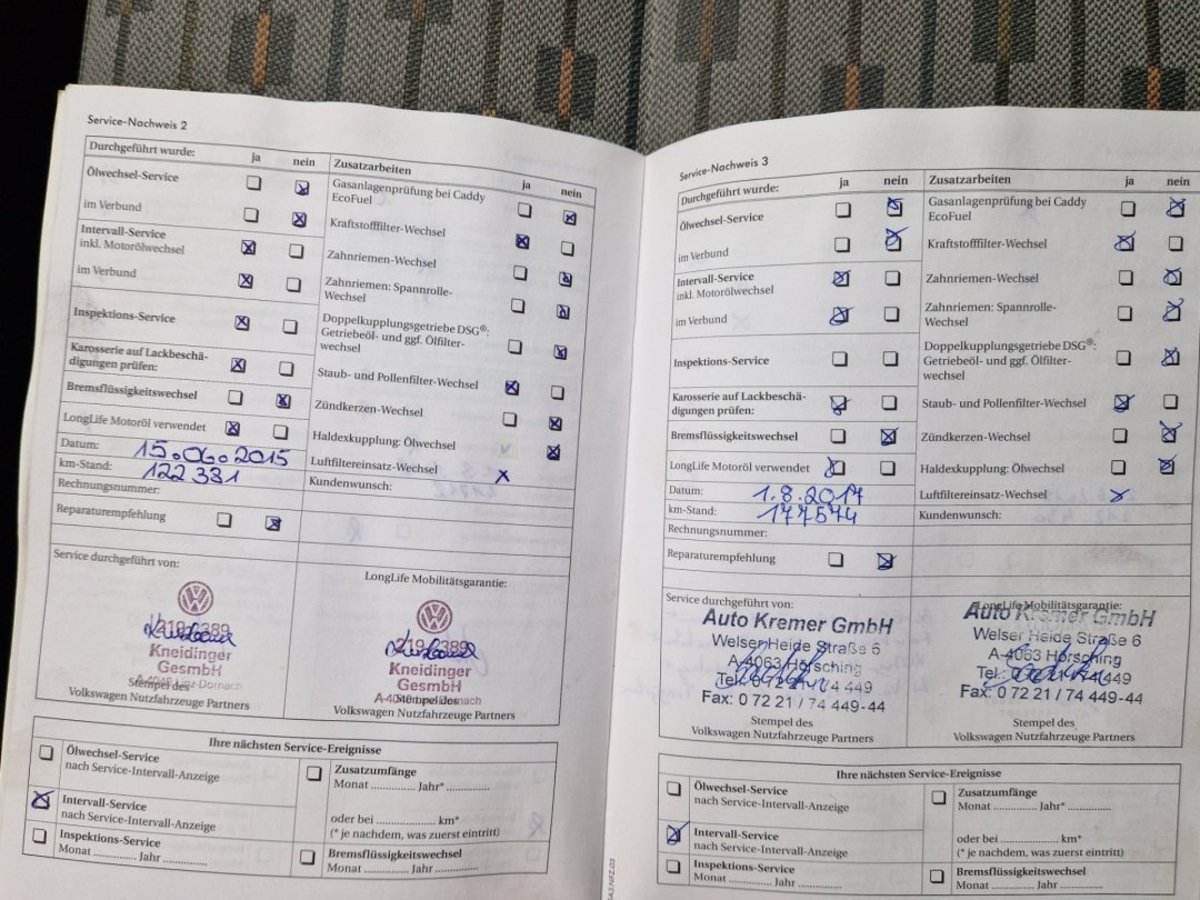 Service-Nachweis 2
Durchgeführt wurde: ja nein Zusatzarbeiten ja nein
Ölwechsel-Service
im Verbund
Intervall-Service
inkl. Motorölwechsel
im Verbund
Inspektions-Service
Karosserie auf Lackbeschä-
digungen prüfen:
Bremsflüssigkeitswechsel
LongLife Motoröl verwendet
Datum: 15.06.2015
km-Stand: 122 331
Rechnungsnummer:
Reparaturempfehlung
Gasanlagenprüfung bei Caddy
EcoFuel
Kraftstofffilter-Wechsel
Zahnriemen-Wechsel
Zahnriemen: Spannrolle-
Wechsel
Doppelkupplungsgetriebe DSG®:
Getriebeöl- und ggf. Ölfilter-
wechsel
Staub- und Pollenfilter-Wechsel
Zündkerzen-Wechsel
Haldexkupplung: Ölwechsel
Luftfiltereinsatz-Wechsel x
Kundenwunsch:
Service durchgeführt von:
Kneidinger
GesmbH
Stempel des
Volkswagen Nutzfahrzeuge Partners
LongLife Mobilitätsgarantie:
Kneidinger
GesmbH
Stempel des
Volkswagen Nutzfahrzeuge Partners
Ihre nächsten Service-Ereignisse
Ölwechsel-Service
nach Service-Intervall-Anzeige
Intervall-Service
nach Service-Intervall-Anzeige
Inspektions-Service
Monat .............. Jahr ..............
Zusatzumfänge
Monat .............. Jahr* ..............
oder bei .................... km*
(* je nachdem, was zuerst eintritt)
Bremsflüssigkeitswechsel
Monat .............. Jahr ..............
Service-Nachweis 3
Durchgeführt wurde: ja nein Zusatzarbeiten ja nein
Ölwechsel-Service
im Verbund
Intervall-Service
inkl. Motorölwechsel
im Verbund
Inspektions-Service
Karosserie auf Lackbeschä-
digungen prüfen:
Bremsflüssigkeitswechsel
LongLife Motoröl verwendet
Datum: 1.8.2017
km-Stand: 177574
Rechnungsnummer:
Reparaturempfehlung
Gasanlagenprüfung bei Caddy
EcoFuel
Kraftstofffilter-Wechsel
Zahnriemen-Wechsel
Zahnriemen: Spannrolle-
Wechsel
Doppelkupplungsgetriebe DSG®:
Getriebeöl- und ggf. Ölfilter-
wechsel
Staub- und Pollenfilter-Wechsel
Zündkerzen-Wechsel
Haldexkupplung: Ölwechsel
Luftfiltereinsatz-Wechsel x
Kundenwunsch:
Service durchgeführt von:
Auto Kremer GmbH
Welser Heide Straße 6
A-4063 Hörsching
Tel.: 0 72 21 / 74 449
Fax: 0 72 21 / 74 449-44
Stempel des
Volkswagen Nutzfahrzeuge Partners
LongLife Mobilitätsgarantie:
Auto Kremer GmbH
Welser Heide Straße 6
A-4063 Hörsching
Tel.: 0 72 21 / 74 449
Fax: 0 72 21 / 74 449-44
Stempel des
Volkswagen Nutzfahrzeuge Partners
Ihre nächsten Service-Ereignisse
Ölwechsel-Service
nach Service-Intervall-Anzeige
Intervall-Service
nach Service-Intervall-Anzeige
Inspektions-Service
Monat .............. Jahr ..............
Zusatzumfänge
Monat .............. Jahr* ..............
oder bei .................... km*
(* je nachdem, was zuerst eintritt)
Bremsflüssigkeitswechsel
Monat .............. Jahr ..............